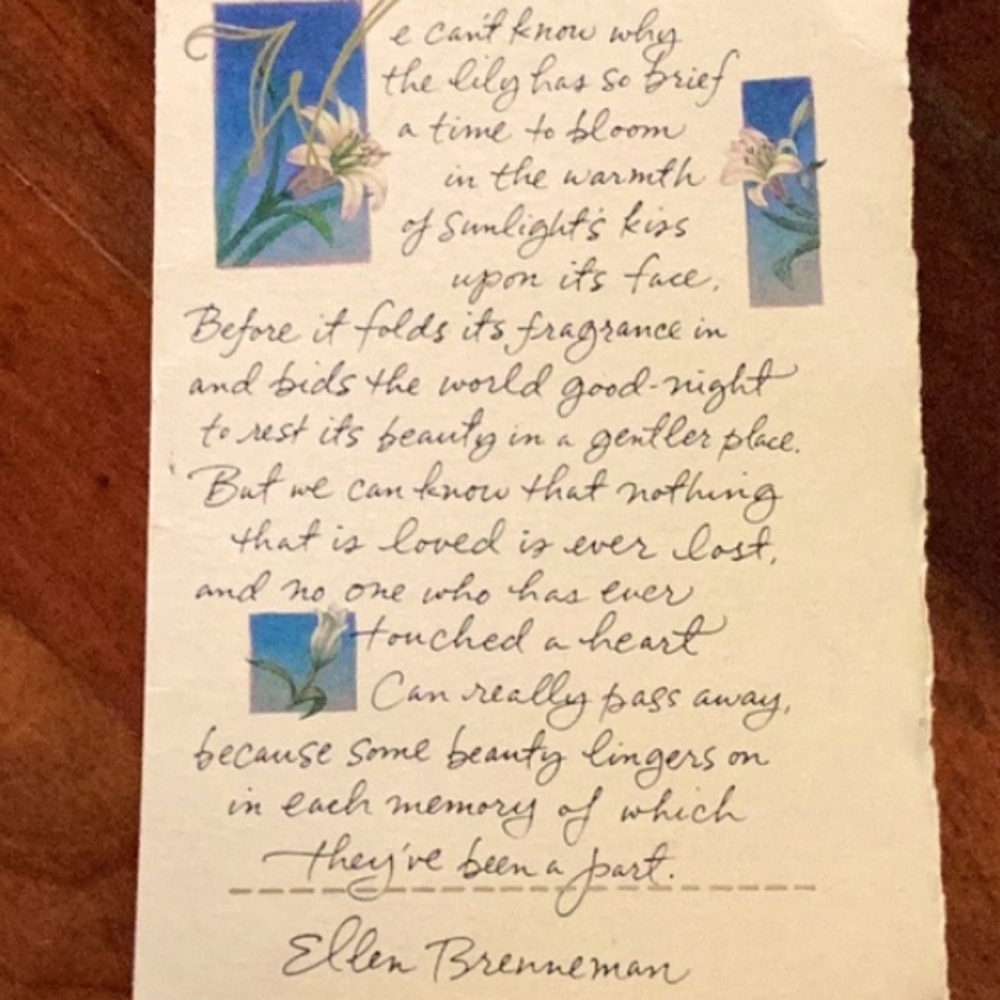 We can't know why
the lily has so brief
a time to bloom
in the warmth
of sunlight's kiss
upon its face.
Before it folds its fragrance in
and bids the world good-night
to rest its beauty in a gentler place.
But we can know that nothing
that is loved is ever lost,
and no one who has ever
touched a heart
Can really pass away,
because some beauty lingers on
in each memory of which
they've been a part.
Ellen Brenneman